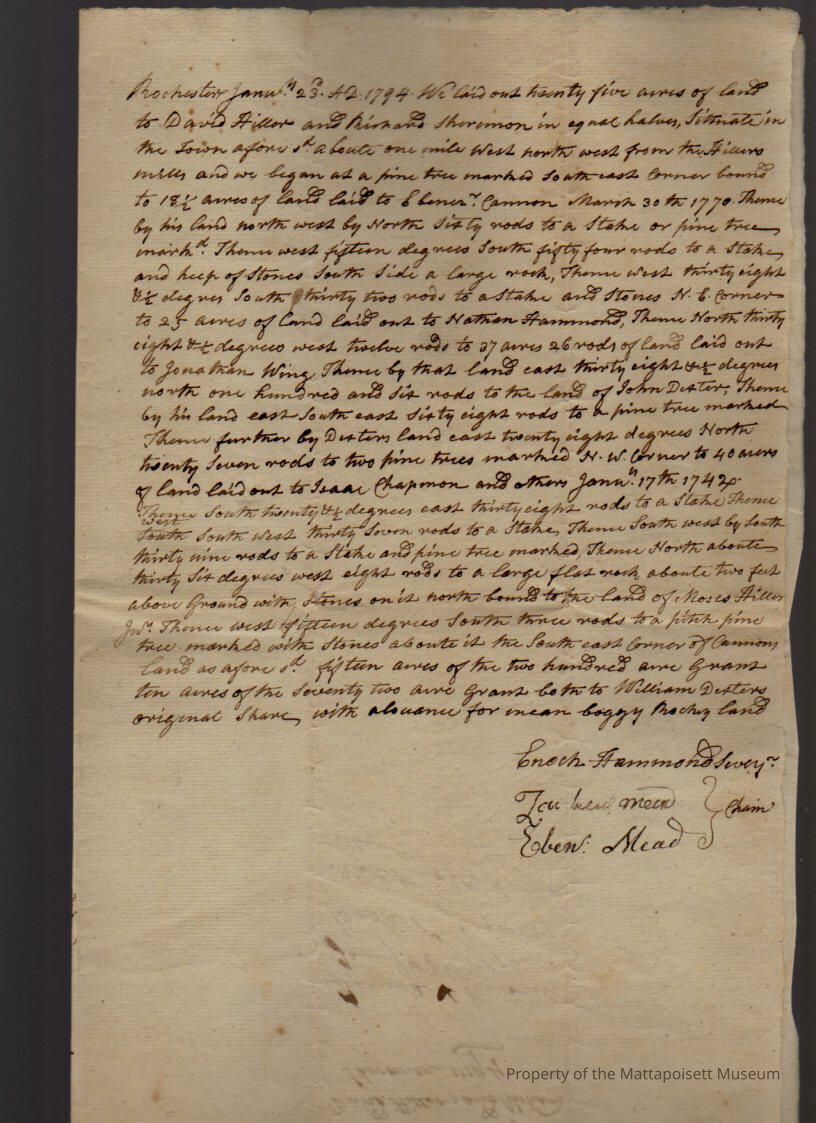 Rochester Janury 23d. AD. 1794. We laid out twenty five acres of land
to David Hiller and Richard Shereman in equal halves, Sittuate in
the Town afore sd aboute one mile West north west from the Hillers
mills and we began at a pine tree marked South east Corner bound
to 18½ acres of land laid to Ebenezr. Cannon March 30th 1770. Thence
by his land north west by North Sixty rods to a Stake or pine tree
markd. Thence west fifteen degrees South fifty four rods to a Stake
and heep of Stones South Side a large rock, Thence West thirty eight
&½ degrees South thirty two rods to a Stake and Stones N. E. Corner
to 25 acres of land laid out to Nathan Hammond, Thence North thirty
eight &½ degrees west twelve rods to 37 acres 26 rods of land laid out
to Jonathan Wing Thence by that land east thirty eight &½ degrees
north one hundred and Six rods to the land of John Dexter, Thence
by his land east South east Sixty eight rods to a pine tree marked
Thence further by Dexters land east twenty eight degrees North
twenty Seven rods to two pine trees marked N. W. Corner to 40 acres
of land laid out to Isaac Chapmon and others Janury. 17th 1742
Thence South twenty &½ degrees east thirty eight rods to a Stake Thence
west
South South west thirty Seven rods to a Stake, Thence South west by South
thirty nine rods to a Stake and pine tree marked, Thence North aboute
thirty Six degrees west eight rods to a large flat rock aboute two feet
above Ground with Stones on it north bound to the land of Moses Hiller
Junr. Thence west fifteen degrees South three rods to a pitch pine
tree marked with Stones aboute it the South east Corner of Cannons
land as afore sd. fifteen acres of the two hundred acre Grant
ten acres of the Seventy two acre Grant both to William Dexters
original Share, with alowance for mean boggy Rocky land
Enoch Hammond Surveyr
mead } Chain
Ebenr. Mead
Property of the Mattapoisett Museum